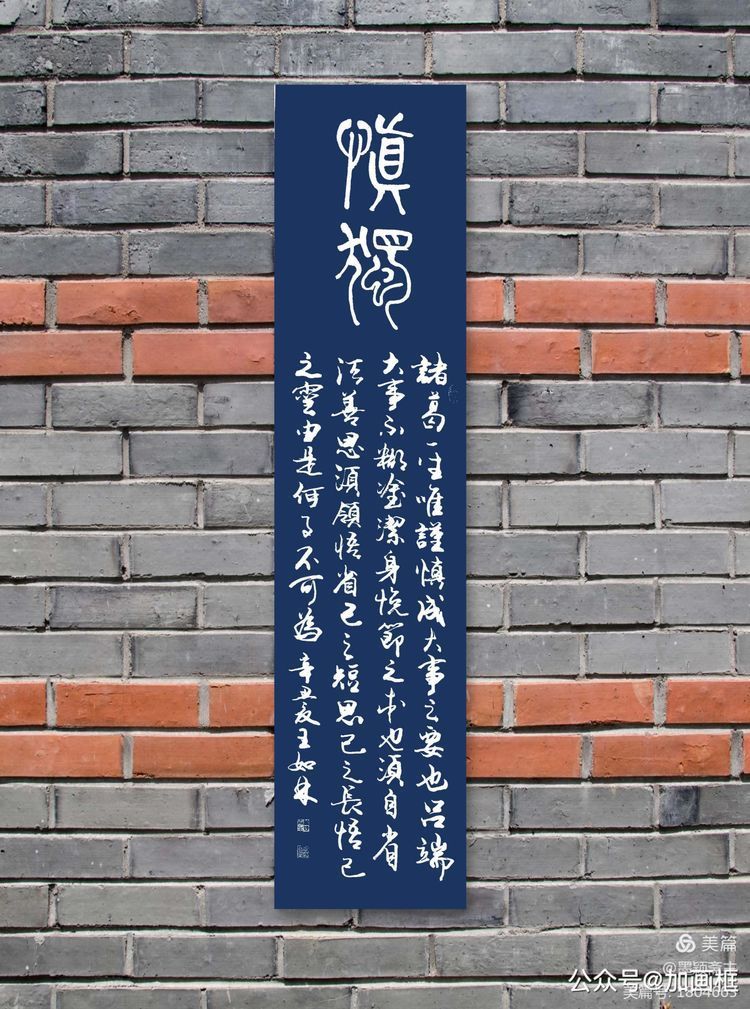 慎獨
諸葛一生唯謹慎成大事之要也吕端
大事不糊塗潔身悦節之本也須自省
法善思須領悟省己之短思己之長悟己
之靈由是何事不可為 辛丑夏王如林
美篇
公众号@加画框